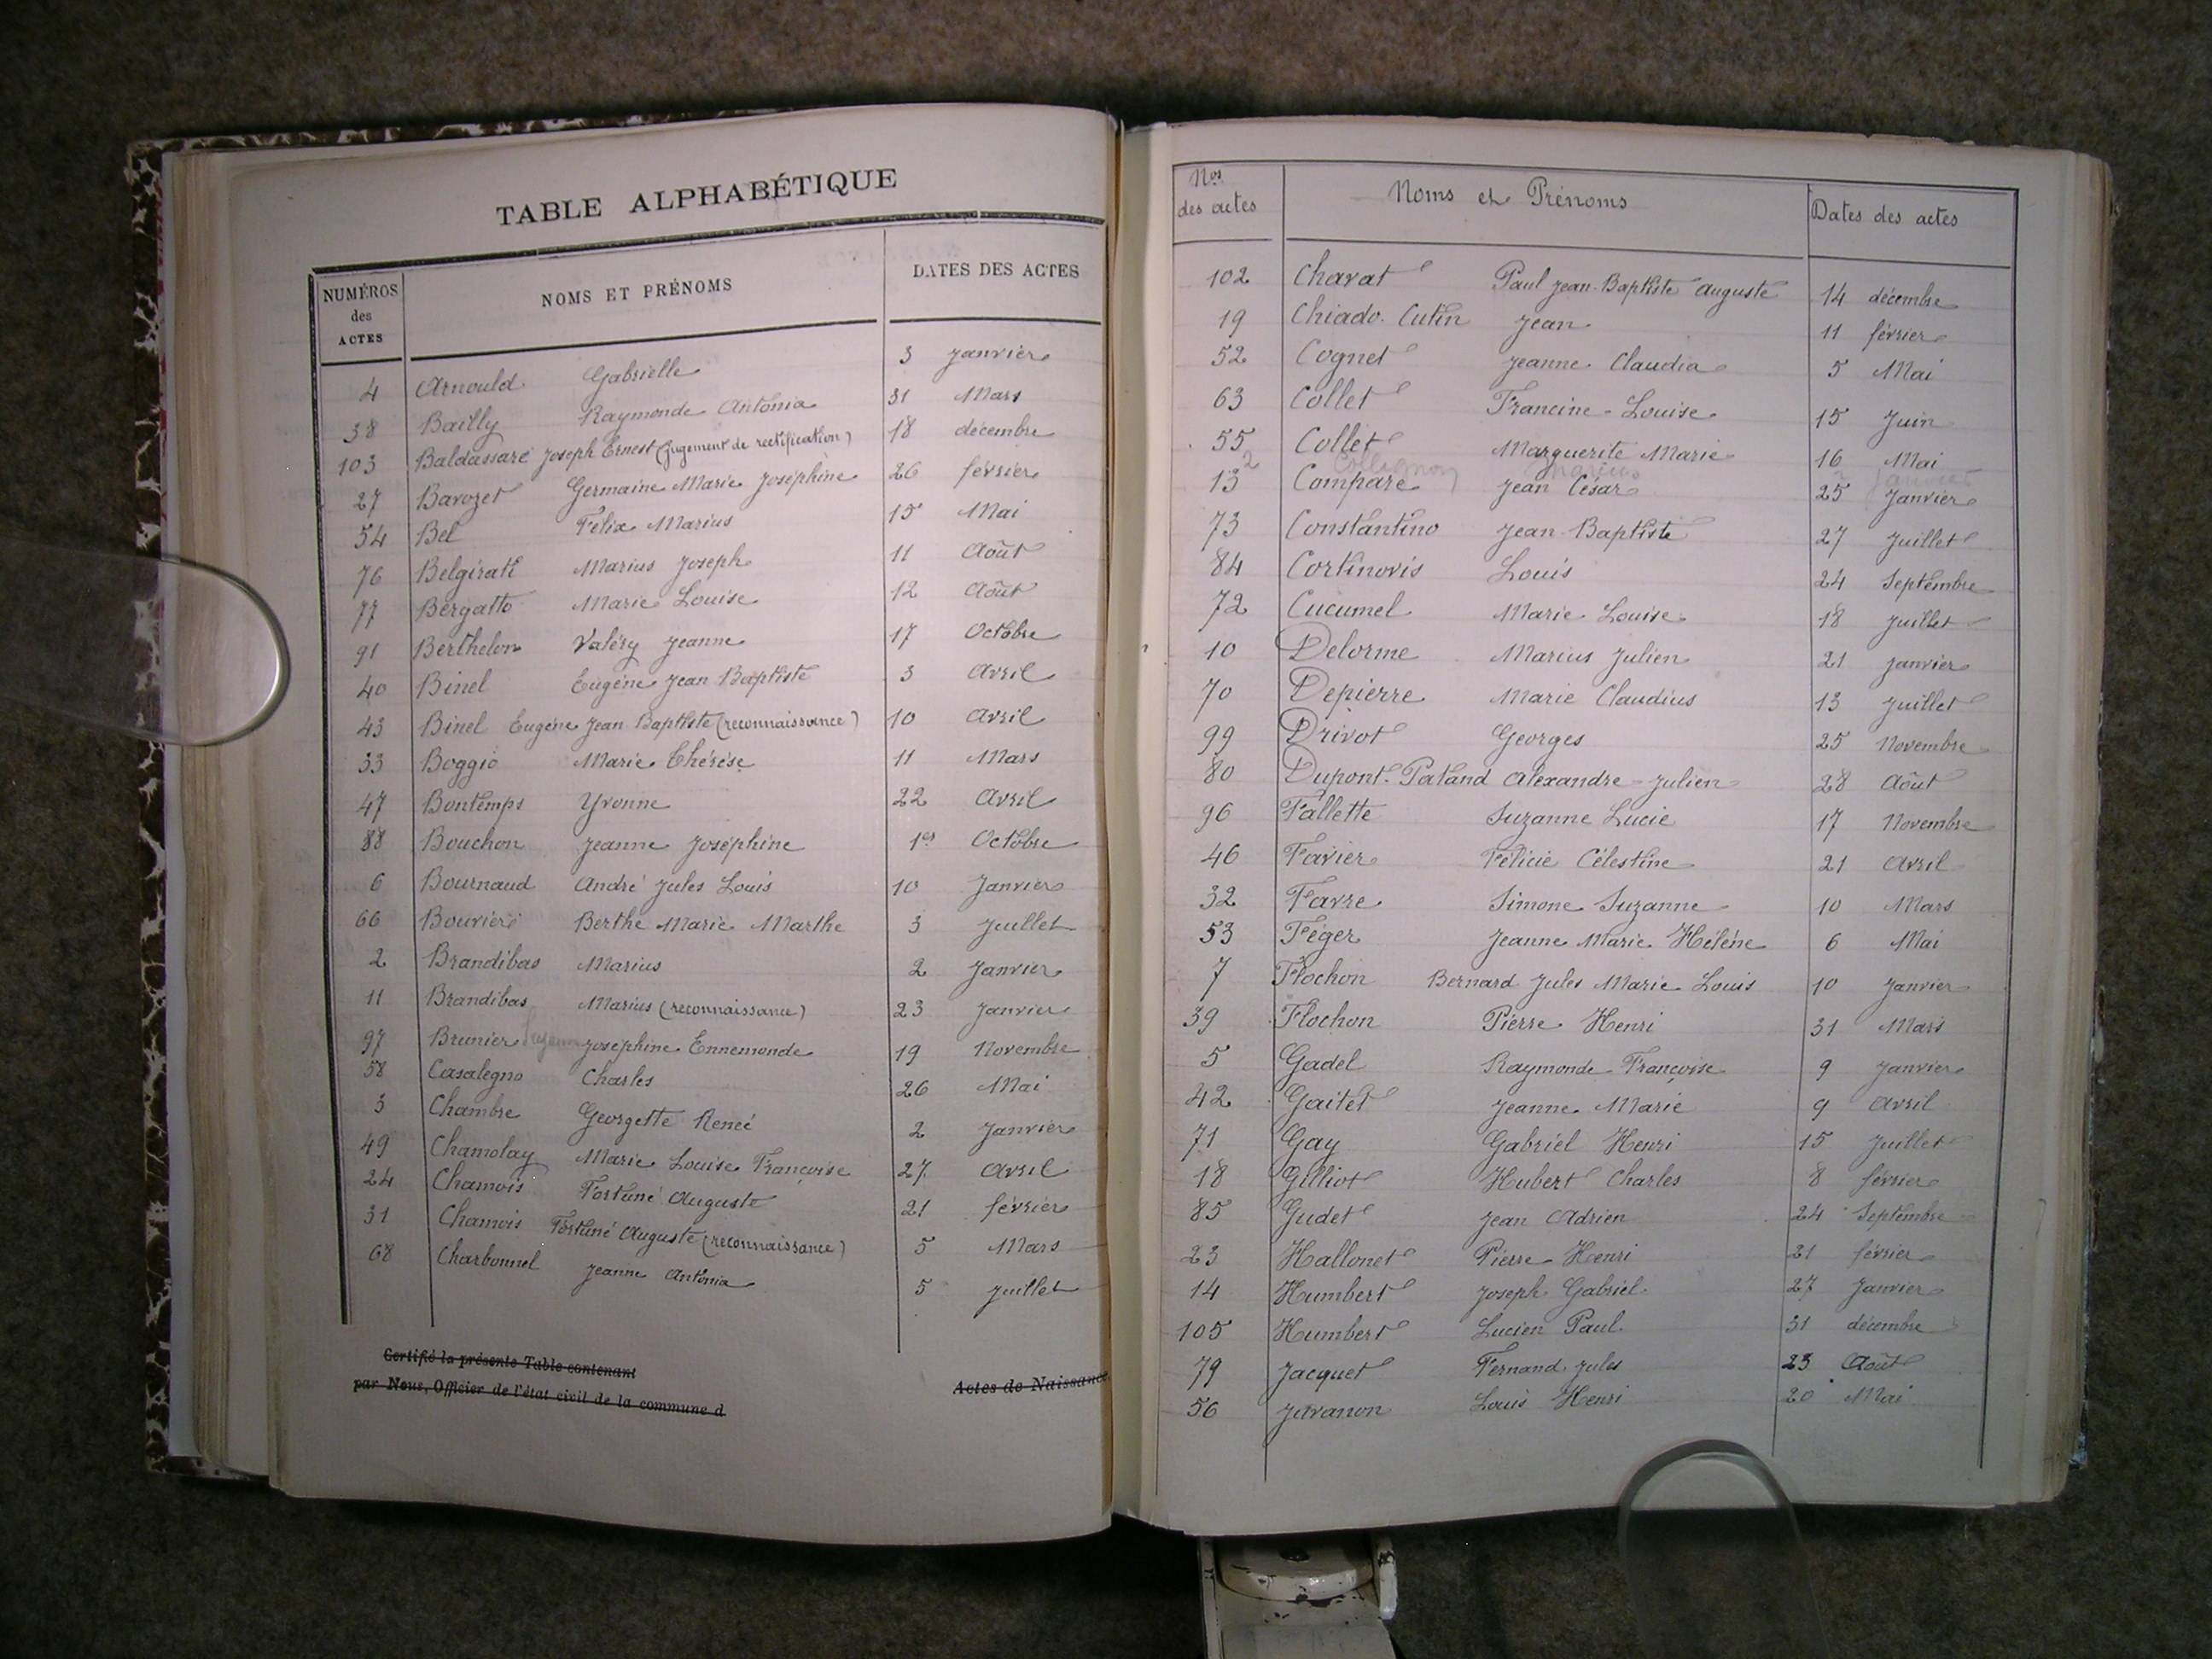 TABLE ALPHABÉTIQUE
NUMÉROS des ACTES NOMS ET PRÉNOMS DATES DES ACTES
4 Arnould Gabrielle 3 Janvier
38 Bailly Raymonde Antonia 31 Mars
103 Baldassaré Joseph Ernest (jugement de rectification) 18 décembre
27 Bavozet Germaine Marie Joséphine 26 février
54 Bel Félix Marius 15 Mai
76 Belgirati Marius Joseph 11 Août
77 Bergatto Marie Louise 12 Août
91 Berthelon Valéry Jeanne 17 Octobre
40 Binel Eugène Jean Baptiste 3 Avril
43 Binel Eugène Jean Baptiste (reconnaissance) 10 Avril
33 Boggio Marie Thérèse 11 Mars
47 Bontemps Yvonne 22 Avril
88 Bouchon Jeanne Joséphine 1er Octobre
6 Bournaud André Jules Louis 10 Janvier
66 Bouvier Berthe Marie Marthe 3 Juillet
2 Brandibas Marius 2 Janvier
11 Brandibas Marius (reconnaissance) 23 Janvier
97 Brunier Joséphine Ennemonde 19 Novembre
58 Casalegno Charles 26 Mai
3 Chambre Georgette Reneé 2 Janvier
49 Chamolay Marie Louise Françoise 27 Avril
24 Chamois Fortuné Auguste 21 février
31 Chamois Fortuné Auguste (reconnaissance) 5 Mars
68 Charbonnel Jeanne Antonia 5 Juillet
Certifié la présente Table contenant Actes de Naissance
par Nous, Officier de l'état civil de la commune d
Nos des actes Noms et Prénoms Dates des actes
102 Chavat Paul Jean-Baptiste Auguste 14 décembre
19 Chiado-Cutin Jean 11 février
52 Cognet Jeanne Claudia 5 Mai
63 Collet Francine-Louise 15 Juin
55 Collet Marguerite Marie 16 Mai
2 Collignon Marius Janvier
13 Comparé Jean César 25 Janvier
73 Constantino Jean-Baptiste 27 Juillet
84 Cortinovis Louis 24 Septembre
72 Cucumel Marie Louise 18 Juillet
10 Delorme Marius Julien 21 Janvier
70 Depierre Marie Claudius 13 Juillet
99 Drivot Georges 25 Novembre
80 Dupont-Patand Alexandre-Julien 28 Août
96 Fallette Suzanne Lucie 17 Novembre
46 Favier Félicie Célestine 21 Avril
32 Favre Simone Suzanne 10 Mars
53 Féger Jeanne Marie Hélène 6 Mai
7 Flochon Bernard Jules Marie Louis 10 Janvier
39 Flochon Pierre Henri 31 Mars
5 Gadel Raymonde Françoise 9 Janvier
42 Gaitet Jeanne Marie 9 Avril
71 Gay Gabriel Henri 15 Juillet
18 Gilliot Hubert Charles 8 février
85 Gudet Jean Adrien 24 Septembre
23 Hallonet Pierre Henri 21 février
14 Humbert Joseph Gabriel 27 Janvier
105 Humbert Lucien Paul 31 décembre
79 Jacquet Fernand Jules 23 Août
56 Javanon Louis Henri 20 Mai